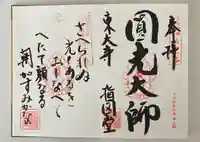 奉拝
圓光大師
東大寺 指図堂
さへられぬ
光もあるを
おしなべて
へたて顔なる
朝かすみかな